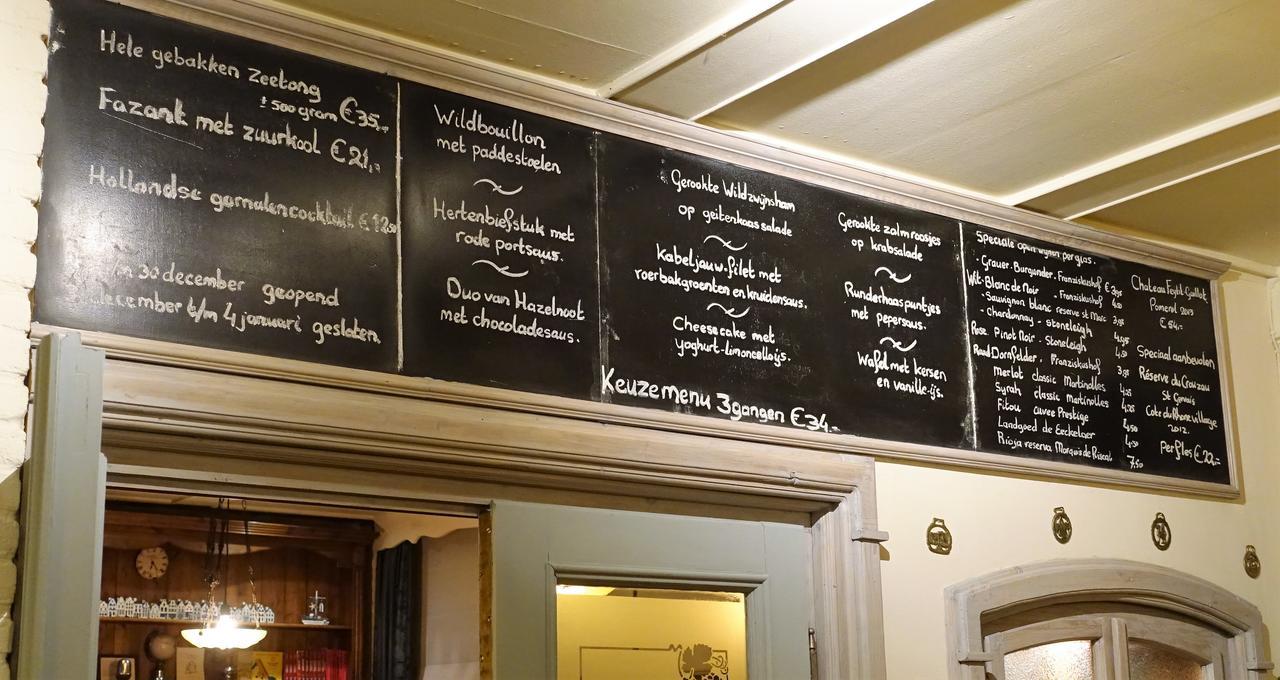 Hele gebakken Zeetong
± 500 gram €35,-
Fazant met zuurkool €21,-
Hollandse garnalencocktail €12,50
30 december geopend
december t/m 4 januari gesloten
Wildbouillon
met paddestoelen
Hertenbiefstuk met
rode portsaus.
Duo van Hazelnoot
met chocoladesaus.
Gerookte Wildzwijnsham
op geitenkaassalade
Kabeljauw-filet met
roerbakgroenten en kruidensaus.
Cheesecake met
yoghurt-limoncelloijs.
Gerookte zalmroosjes
op krabsalade
Runderhaaspuntjes
met pepersaus.
Wafel met kersen
en vanille-ijs.
Keuzemenu 3gangen €34,-
Speciale open wijnen per glas.
- Grauer. Burgunder. Franziskushof € 3,95
Wit- Blanc de Noir . Franziskushof
- Sauvignon blanc reserve st Marc 3,95
- Chardonnay - stoneleigh 4,95
Rose. Pinot Noir - Stoneleigh 4,50
Rood. Dornfelder . Franziskushof 3,95
Merlot classic Martinolles 4,25
Syrah classic Martinolles 4,25
Fitou cuvee Prestige 4,50
Landgoed de Eeckelaer 4,50
Rioja reserva Marques de Riscal 7,50
Chateau Feytit Guillot
Pomerol 2013
€ 54,-
Speciaal aanbevolen
Réserve du Crouzau
St Gervais
Cote du Rhone village
2012.
per fles € 22,-